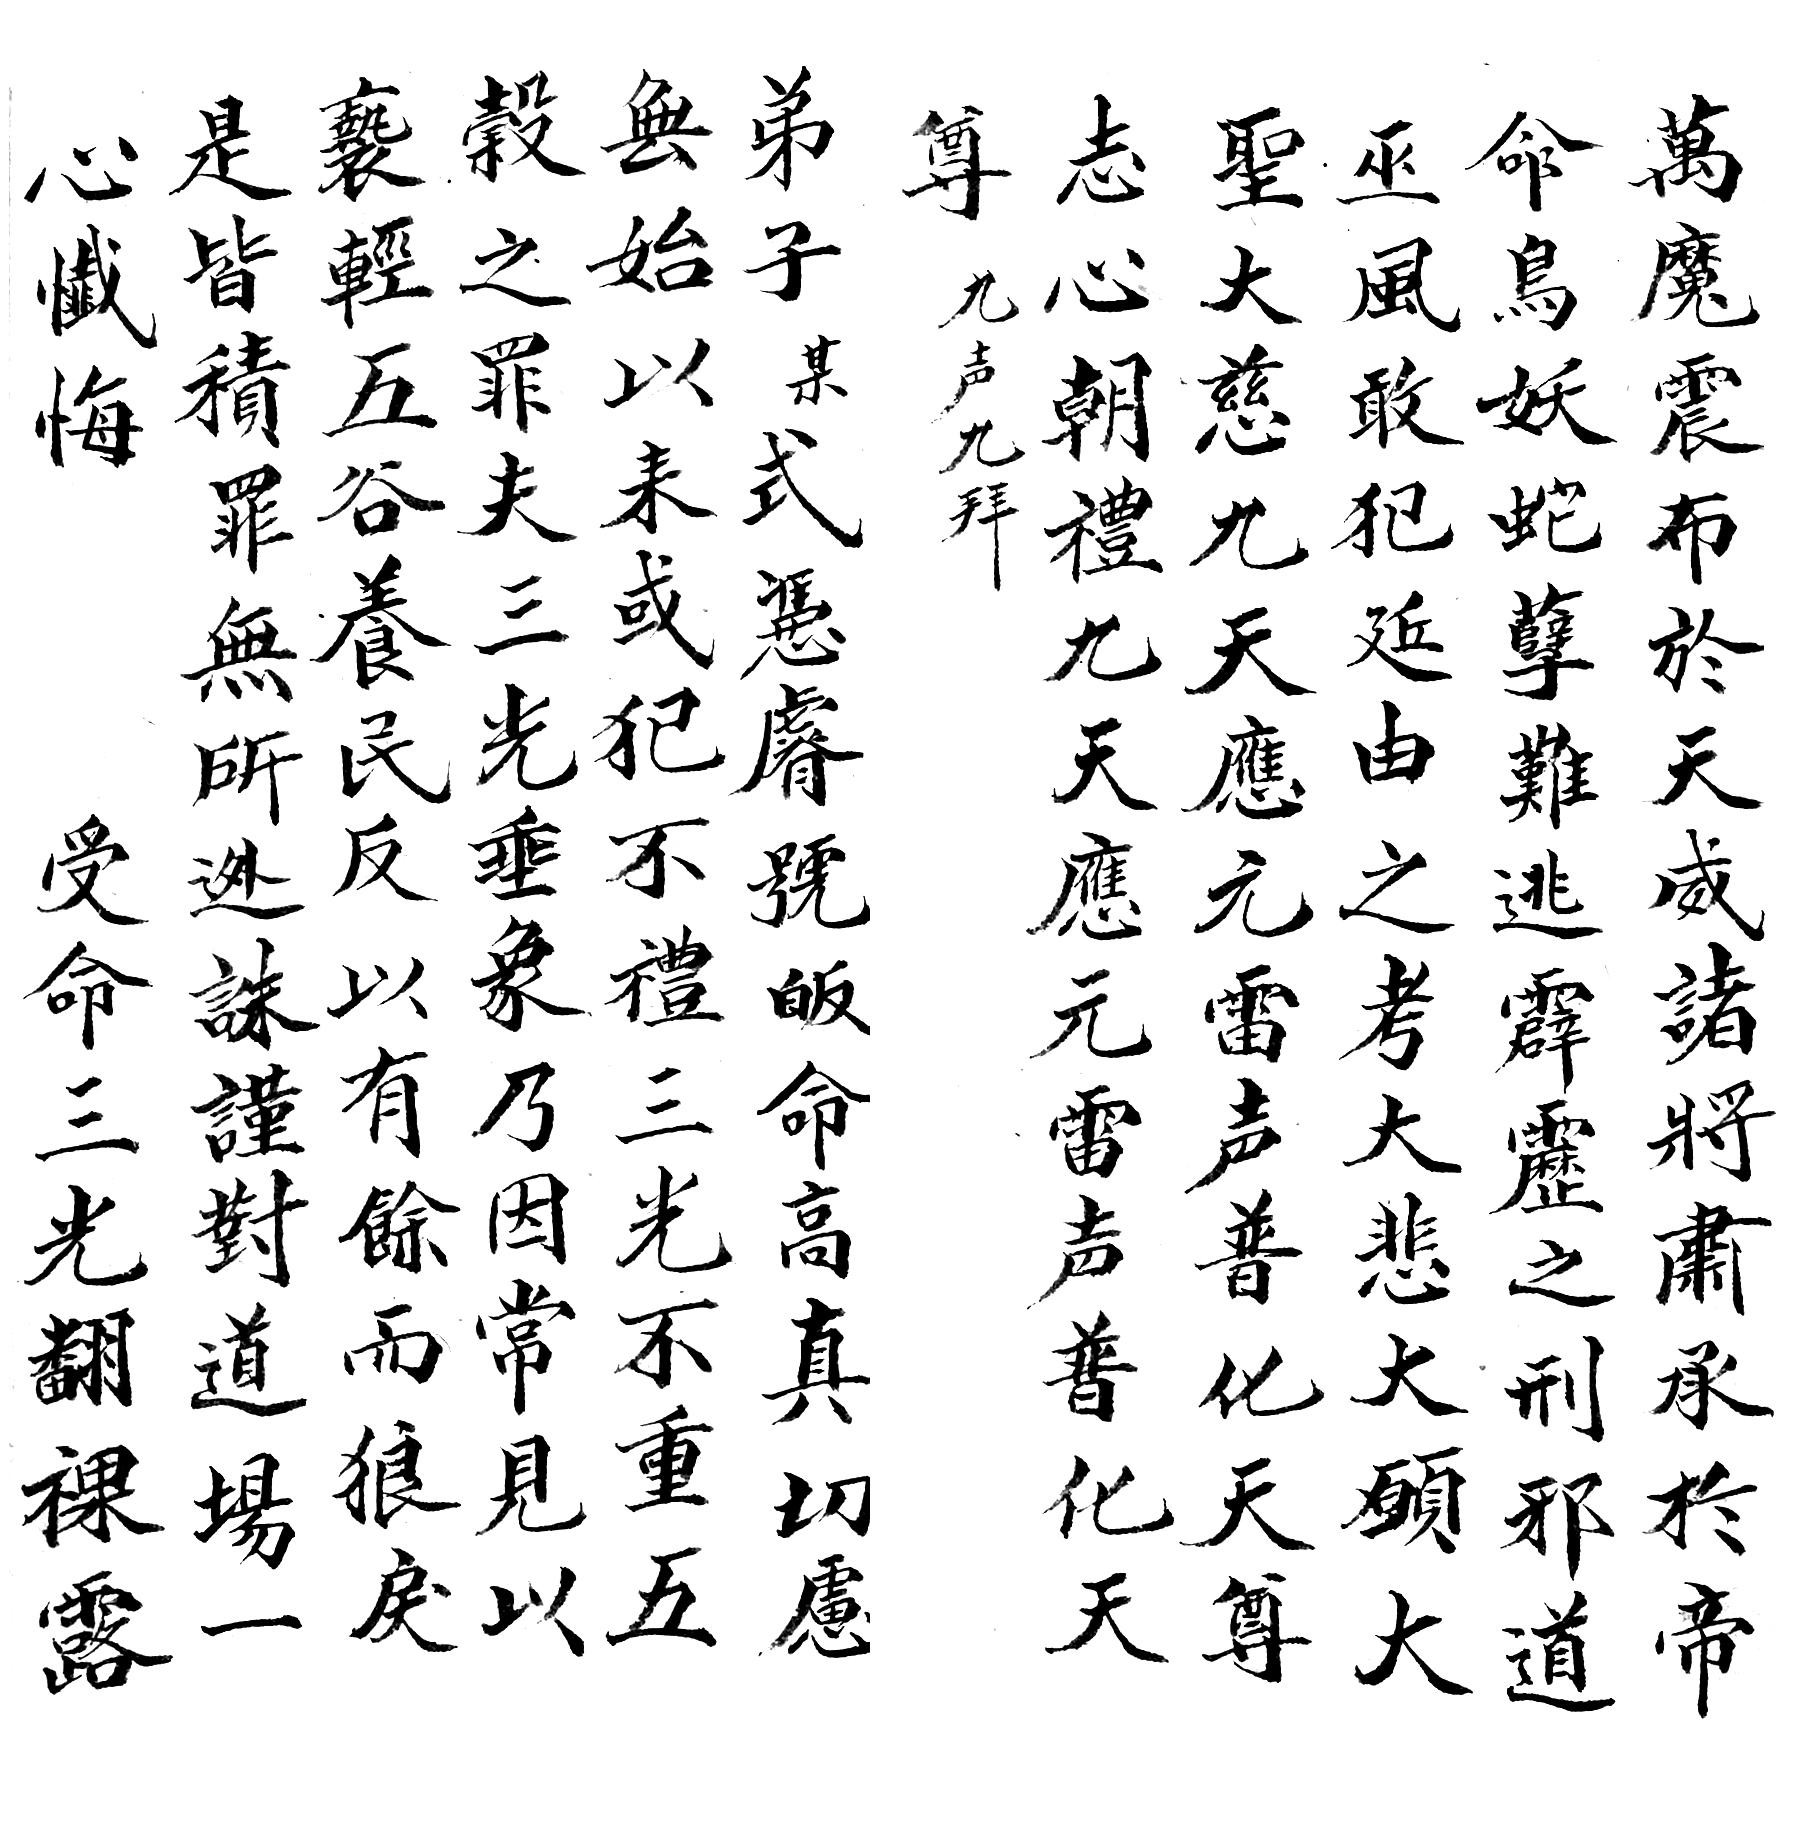 萬魔震布於天威諸將肅承於帝
命鳥妖蛇孽難逃霹靂之刑邪道
巫風敢犯延由之考大悲大願大
聖大慈九天應元雷声普化天尊
志心朝禮九天應元雷声普化天
尊 九声九拜
弟子某式憑睿號皈命高真切慮
無始以来或犯不禮三光不重五
穀之罪夫三光垂象乃因常見以
褻輕五谷養民反以有餘而狼戾
是皆積罪無所逃誅謹對道場一
心懺悔 受命三光翻裸露